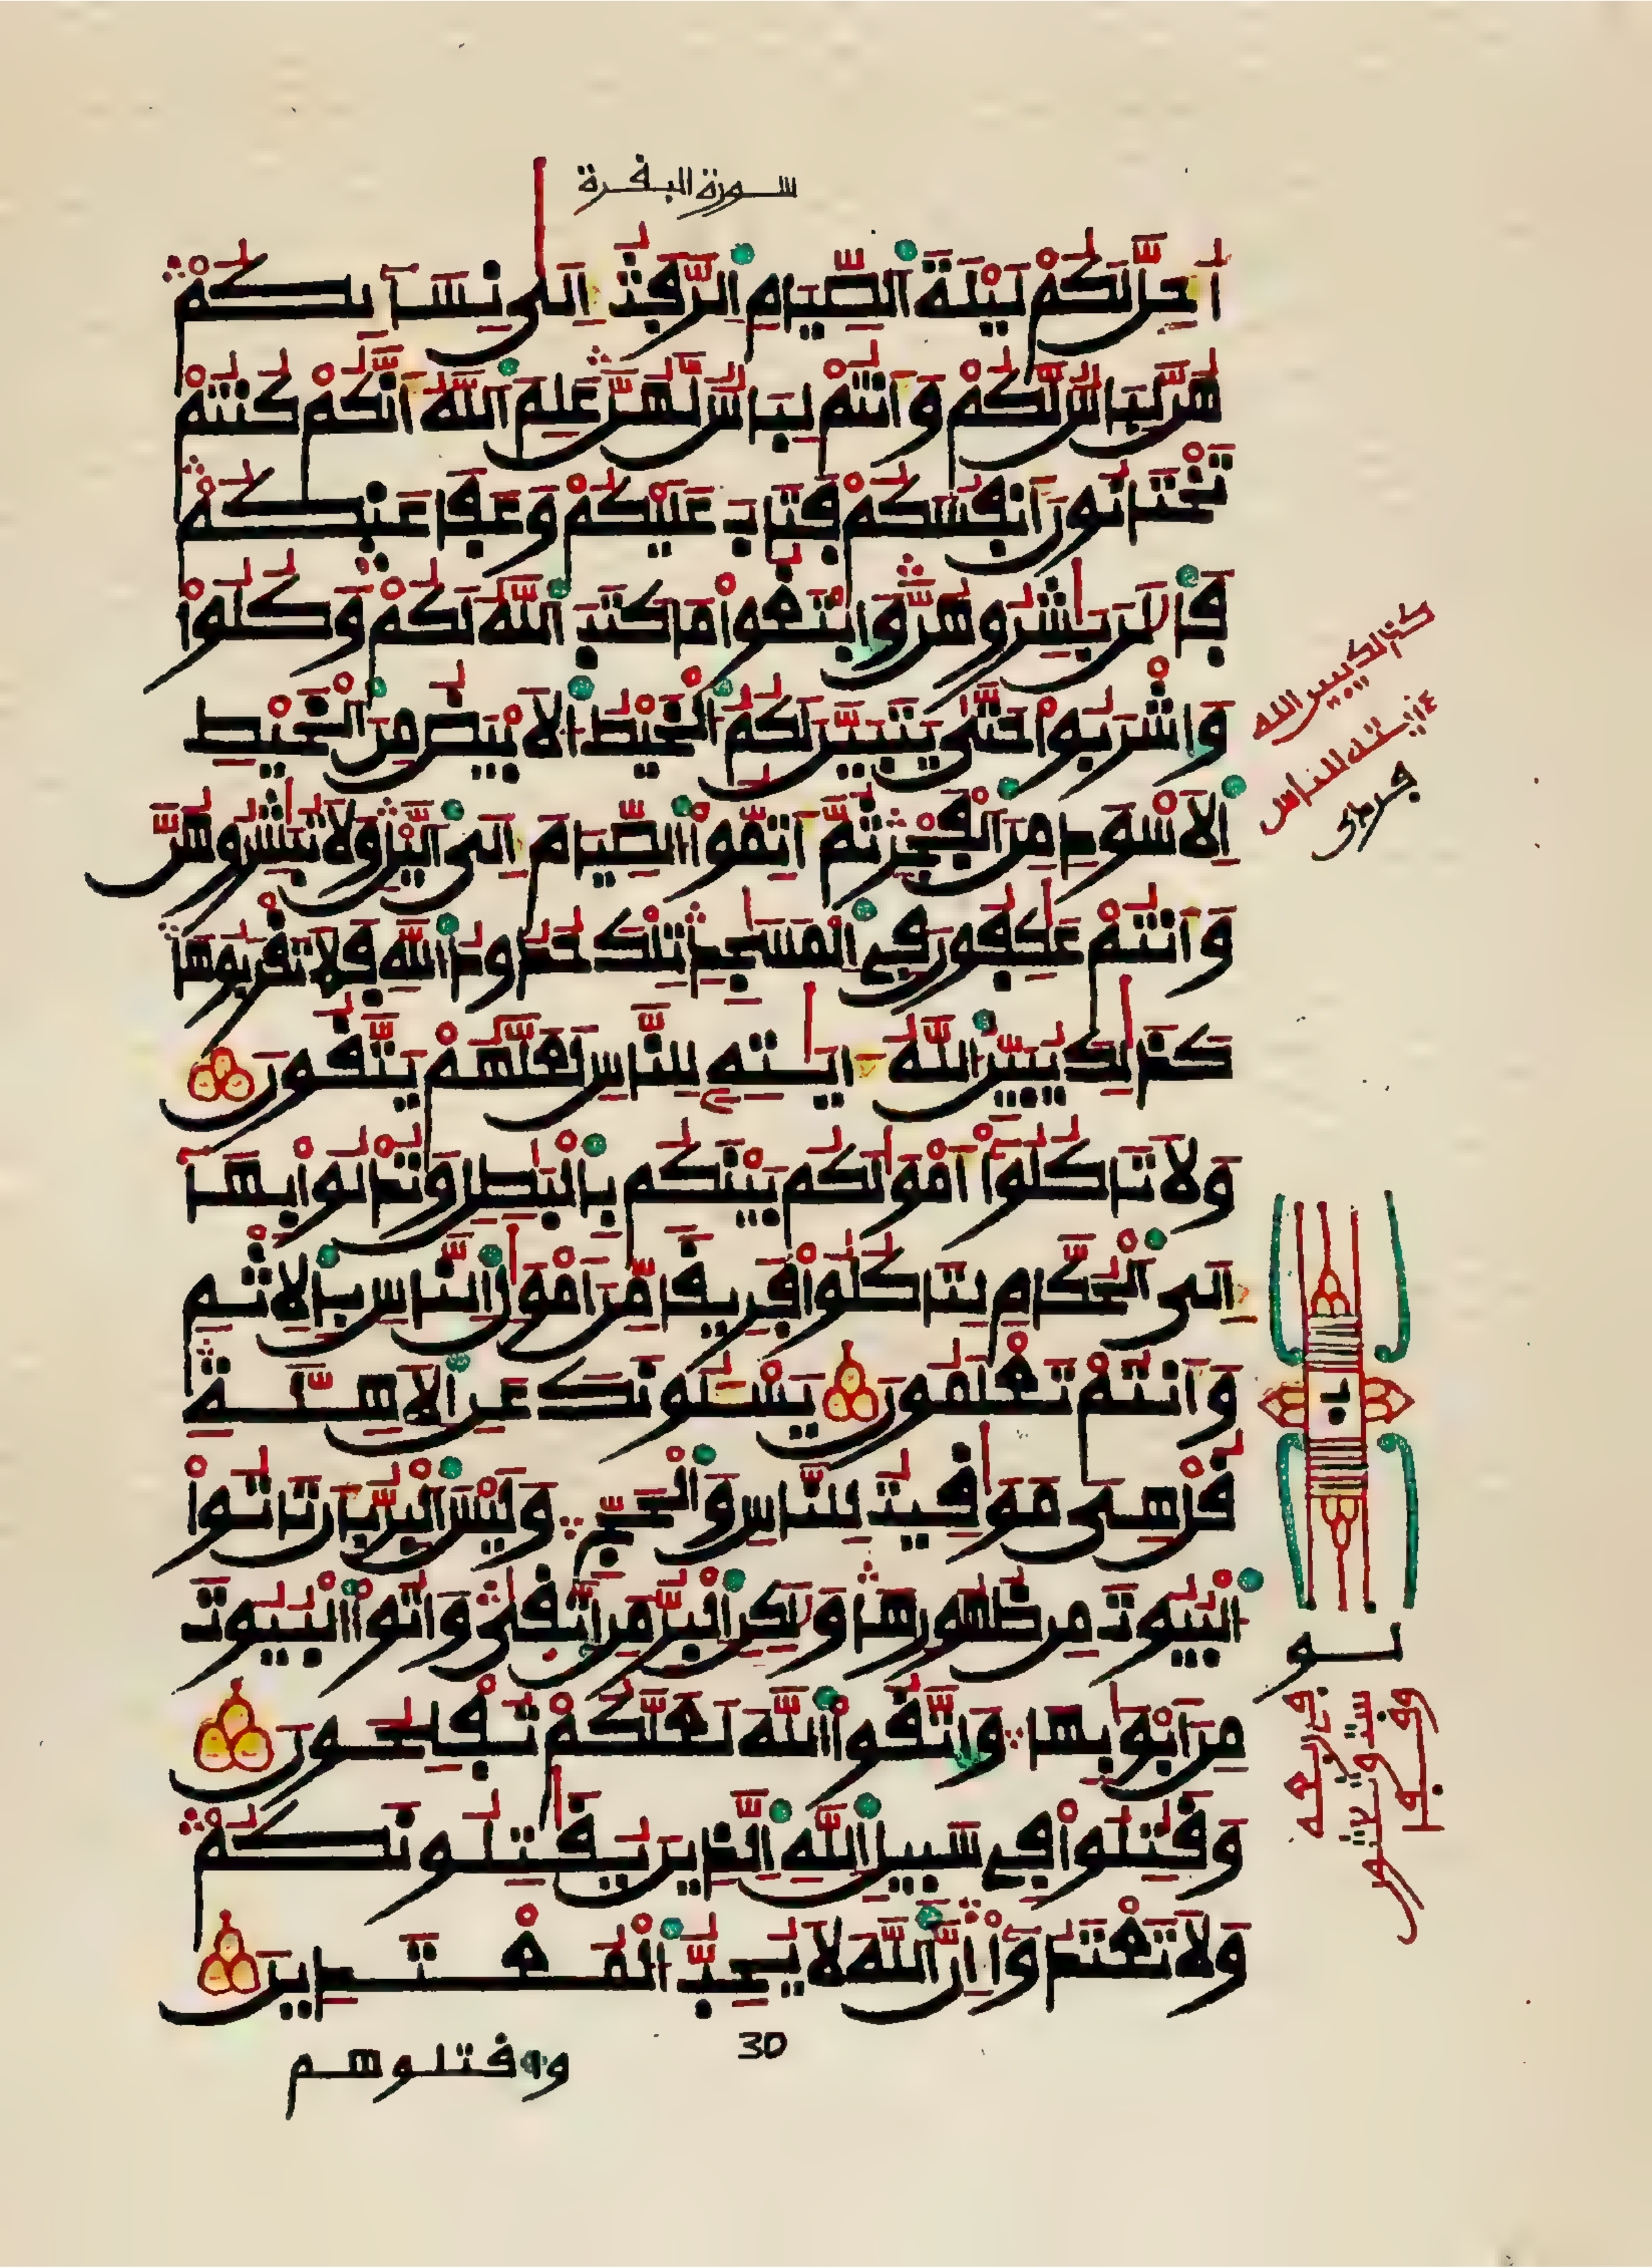 سورة البقرة
أُحِلَّ لَكُمْ لَيْلَةَ الصِّيَامِ الرَّفَثُ إِلَىٰ نِسَآئِكُمْ
هُنَّ لِبَاسٌ لَّكُمْ وَأَنتُمْ لِبَاسٌ لَّهُنَّ عَلِمَ اللَّهُ أَنَّكُمْ كُنتُمْ
تَخْتَانُونَ أَنفُسَكُمْ فَتَابَ عَلَيْكُمْ وَعَفَا عَنكُمْ
فَالَٰنَ بَٰشِرُوهُنَّ وَابْتَغُوا مَا كَتَبَ اللَّهُ لَكُمْ وَكُلُوا
وَاشْرَبُوا حَتَّىٰ يَتَبَيَّنَ لَكُمُ الْخَيْطُ الَابْيَضُ مِنَ الْخَيْطِ
الَاسْوَدِ مِنَ الْفَجْرِ ثُمَّ أَتِمُّوا الصِّيَامَ إِلَى الَّيْلِ وَلَا تُبَٰشِرُوهُنَّ
وَأَنتُمْ عَٰكِفُونَ فِي الْمَسَٰجِدِ تِلْكَ حُدُودُ اللَّهِ فَلَا تَقْرَبُوهَا
كَذَٰلِكَ يُبَيِّنُ اللَّهُ ءَايَٰتِهِ لِلنَّاسِ لَعَلَّهُمْ يَتَّقُونَ
وَلَا تَاكُلُوا أَمْوَٰلَكُم بَيْنَكُم بِالْبَٰطِلِ وَتُدْلُوا بِهَا
إِلَى الْحُكَّامِ لِتَاكُلُوا فَرِيقًا مِّنَ أَمْوَٰلِ النَّاسِ بِالِاثْمِ
وَأَنتُمْ تَعْلَمُونَ يَسْـَٔلُونَكَ عَنِ الَاهِلَّةِ
قُلْ هِيَ مَوَٰقِيتُ لِلنَّاسِ وَالْحَجِّ وَلَيْسَ الْبِرُّ بِأَن تَاتُوا
الْبُيُوتَ مِن ظُهُورِهَا وَلَٰكِنِ الْبِرُّ مَنِ اتَّقَىٰ وَاتُوا الْبُيُوتَ
مِنَ أَبْوَٰبِهَا وَاتَّقُوا اللَّهَ لَعَلَّكُمْ تُفْلِحُونَ
وَقَٰتِلُوا فِي سَبِيلِ اللَّهِ الَّذِينَ يُقَٰتِلُونَكُمْ
وَلَا تَعْتَدُوا إِنَّ اللَّهَ لَا يُحِبُّ الْمُعْتَدِينَ
كذالك يبين الله
ءايته للناس
30
وافتلوهم